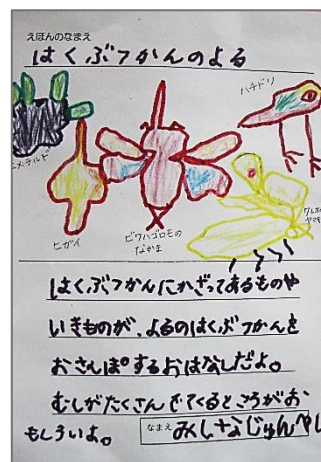 えほんのなまえ
はくぶつかんのよる
ハチドリ
エメラルド
ヒガイ
ビワハゴロモの
なかま
はくぶつかんにかざってあるものや
いきものが、よるのはくぶつかんを
おさんぽするおはなしだよ。
むしがたくさんでてくるところがお
もしろいよ。
なまえ